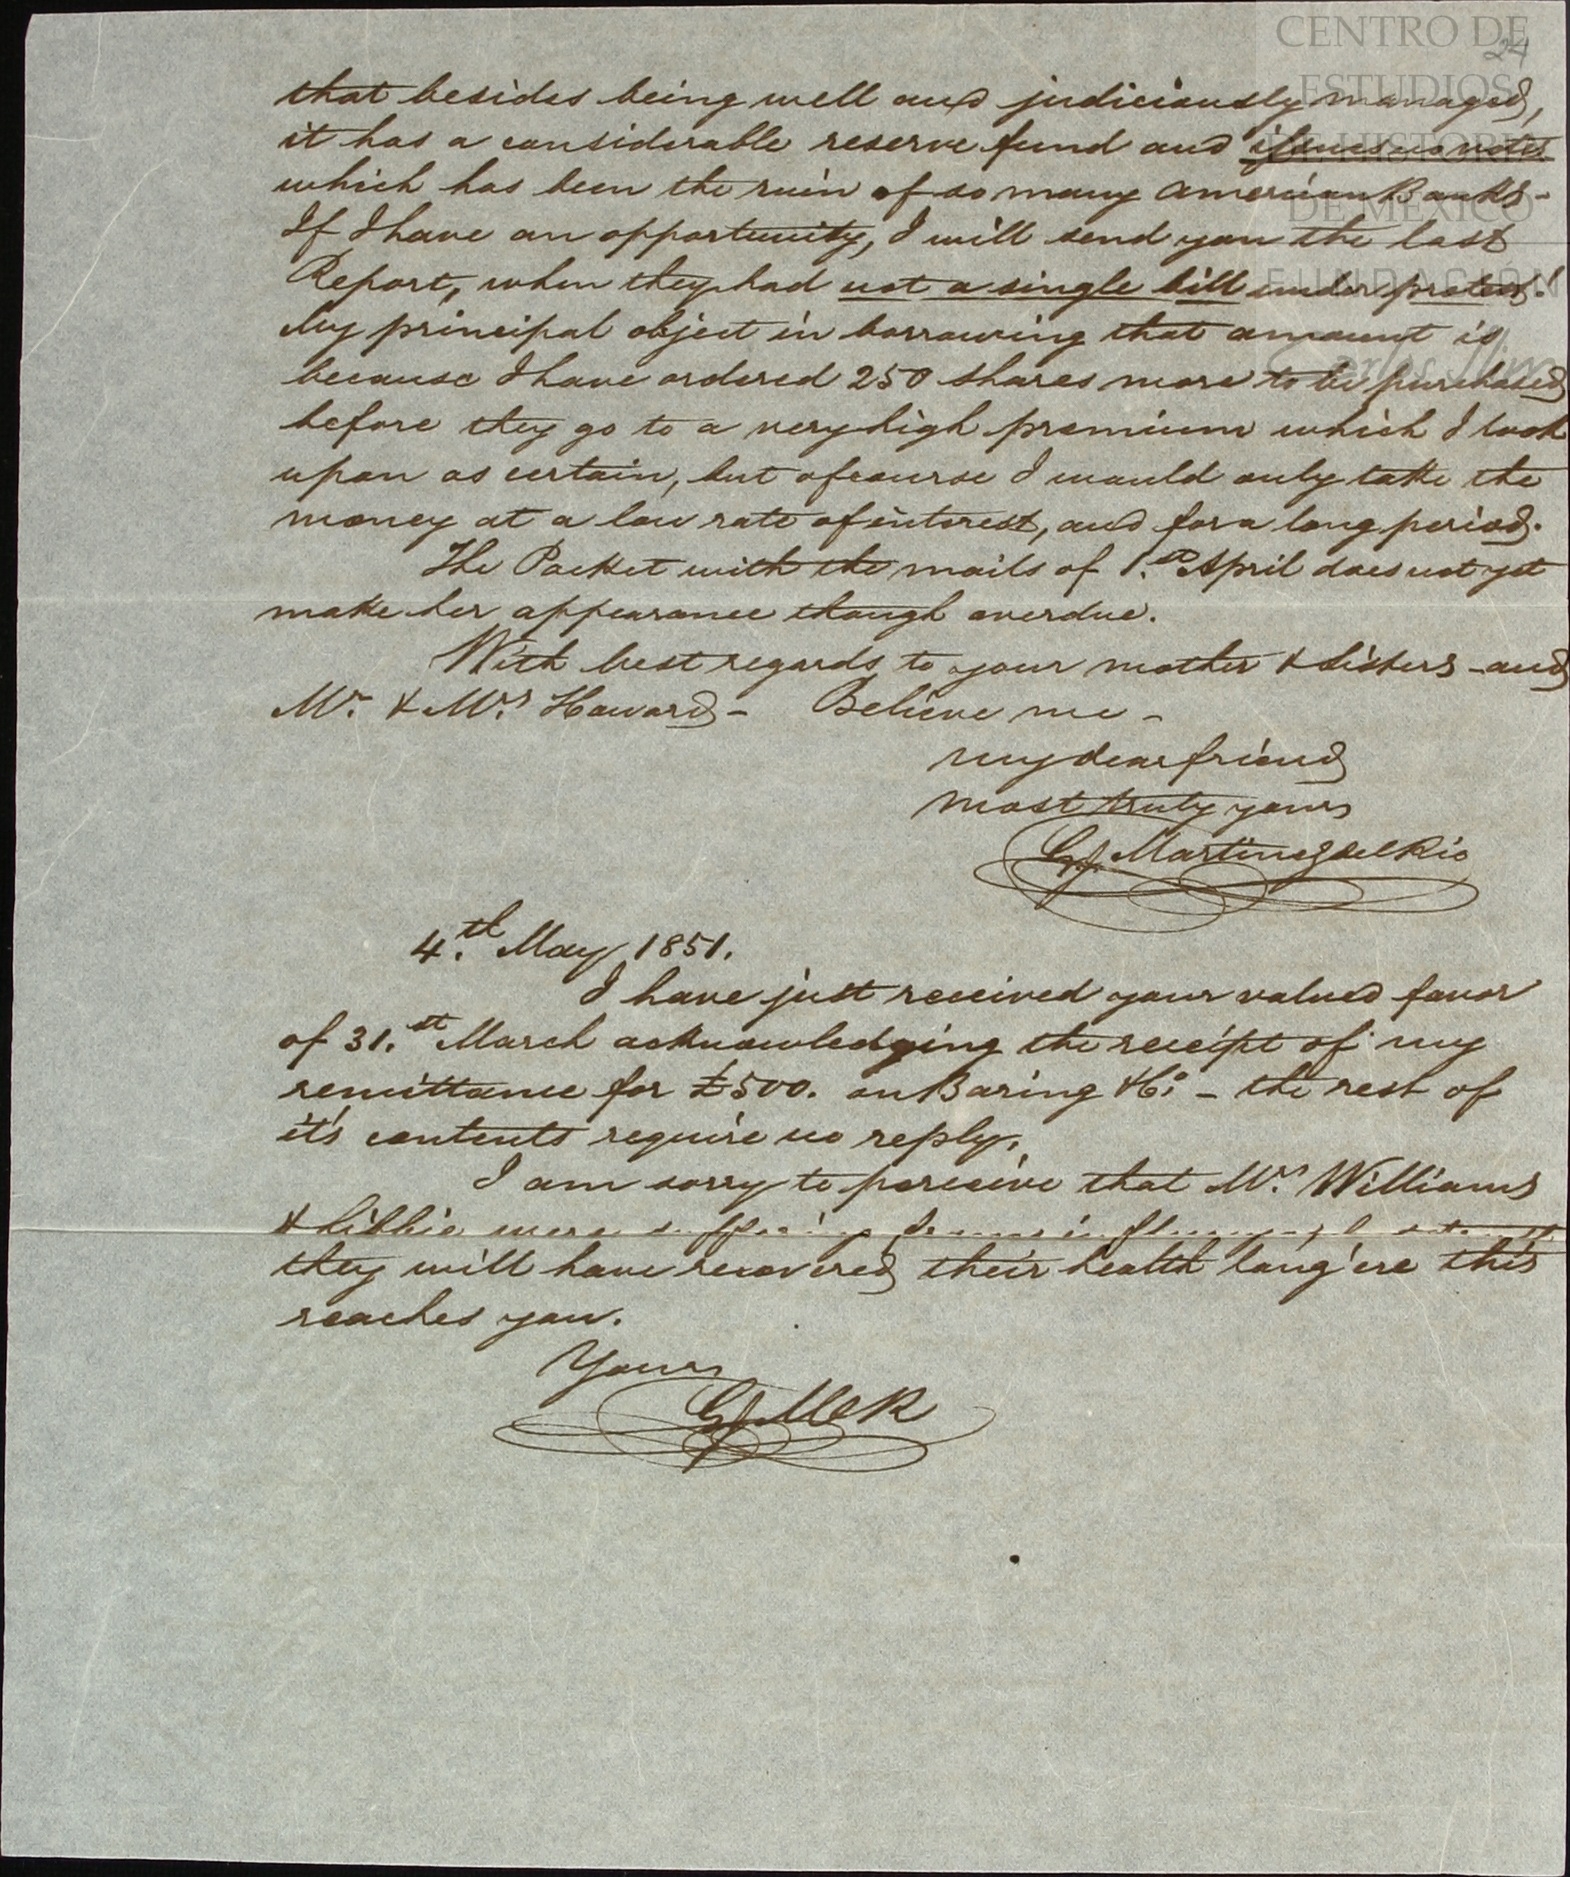 CENTRO DE
ESTUDIOS
DE HISTORIA
DE MÉXICO
FUNDACIÓN
Carlos Slim
24
that besides being well and judiciously managed,
it has a considerable reserve fund and issues no notes
which has been the ruin of so many American Banks -
If I have an opportunity, I will send you the last
Report, when they had not a single bill under protest!
My principal object in borrowing that amount is
because I have ordered 250 shares more to be purchased
before they go to a very high premium which I look
upon as certain, but of course I would only take the
money at a low rate of interest, and for a long period.
The Packet with the mails of 1.º April does not yet
make her appearance though overdue.
With best regards to your mother & sisters - and
Mr. & Mrs. Howard - Believe me -
my dear friend
most truly yours
G J. Martinez del Rio
4.th May 1851.
I have just received your valued favor
of 31.st March acknowledging the receipt of my
remittance for £500. on Baring & Co. - the rest of
it's contents require no reply.
I am sorry to perceive that Mrs. Williams
& were suffering from
they will have recovered their health long 'ere this
reaches you.
Yours
G J M d R